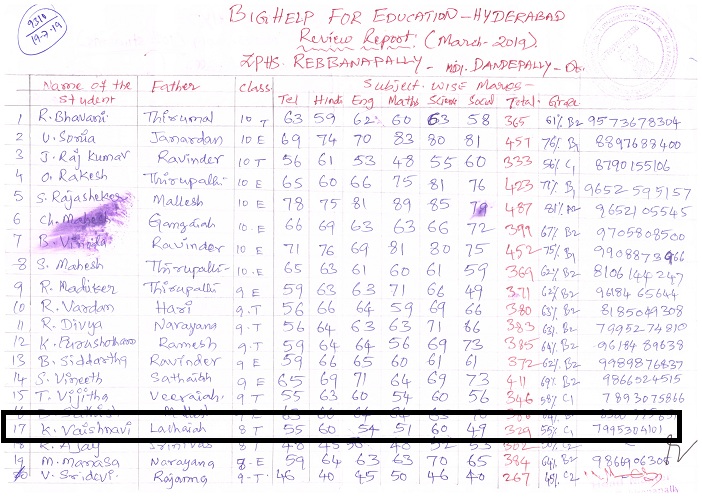 9310
19-7-19
BIGHELP FOR EDUCATION - HYDERABAD
Review Report. (March-2019).
ZPHS. REBBANAPALLY - Mdl. DANDEPALLY -
Name of the Student Father class Subject wise Marks -
Tel Hindi Eng Maths Science Social Total Grade
1 R. Bhavani Thirumal 10 T 63 59 62 60 63 58 365 61% B2 9573678304
2 V. Sonia Janardan 10 E 69 74 70 83 80 81 457 76% B1 8897688400
3 J. Raj Kumar Ravinder 10 T 56 61 53 48 55 60 333 56% C1 8790155106
4 O. Rakesh Thirupathi 10 E 65 60 66 75 81 76 423 71% B1 9652595157
5 S. Rajasheker Mallesh 10 E 78 75 81 89 85 79 487 81% A2 9652105545
6 Ch. Mahesh Gangaiah 10 E 66 69 63 63 66 72 399 67% B2 9705808500
7 B. Vinita Ravinder 10 E 71 76 69 81 80 75 452 75% B1
8 S. Mahesh Thirupathi 10.E 65 63 61 60 61 59 369 62% B2 8106144247
9 R. Madhker Thirupathi 9 E 59 63 63 71 66 49 371 62% B2 9618465644
10 R. Vardan Hari 9.T 56 66 64 59 69 66 380 63% B2 8185049308
11 R. Divya Narayana 9.T 56 64 63 63 71 86 383 63% B2 7995274810
12 K. Purushotham Ramesh 9.T 59 64 64 56 69 73 385 64% B2 9618489638
13 B. Siddartha Ravinder 9 E 59 66 65 60 61 61 372 62% B2 9989876837
14 S. Vineeth Sathaiah 9 E 65 69 71 64 69 73 411 69% B2 9866024515
15 T. Vijitha Veeraiah 9.T 55 63 60 54 60 56 346 58% C1 7893075866
17 K. Vaishnavi Lachaiah 8 T 55 60 54 51 60 49 329 55% C1 7995304101
18 R. Ajay Srinivas
19 M. Manasa Narayana 9.E 59 64 63 63 70 65 384 64% B2 9866906308
20 V. Sridevi Rajanna 9.T 46 40 45 50 46 40 267 45% C2